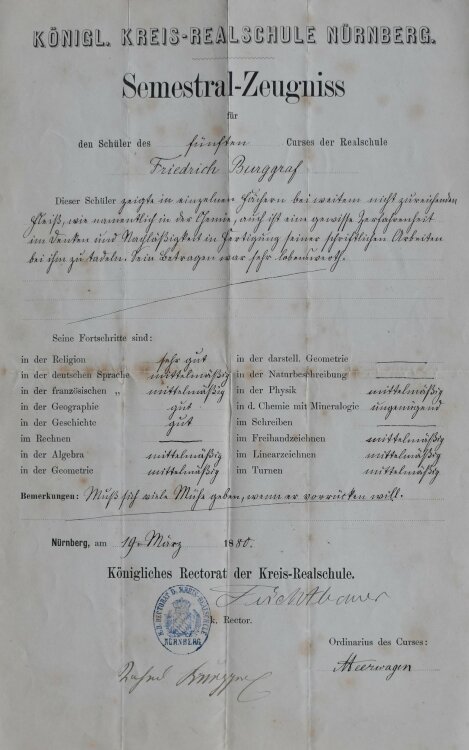 KÖNIGL. KREIS-REALSCHULE NÜRNBERG.
Semestral-Zeugniss
für
den Schüler des fünften Curses der Realschule
Friedrich Burggraf
Dieser Schüler zeigte in einzelnen Fächern bei weitem nicht zureichenden
Fleiß, wie namentlich in der Chemie, auch ist eine gewisse Zerfahrenheit
im Denken und Nachläßigkeit in Fertigung seiner schriftlichen Arbeiten
bei ihm zu tadeln. Sein Betragen war sehr lobenswerth.
Seine Fortschritte sind:
in der Religion sehr gut in der darstell. Geometrie
in der deutschen Sprache mittelmäßig in der Naturbeschreibung
in der französischen „ mittelmäßig in der Physik mittelmäßig
in der Geographie gut in d. Chemie mit Mineralogie ungenügend
in der Geschichte gut im Schreiben
im Rechnen im Freihandzeichnen mittelmäßig
in der Algebra mittelmäßig im Linearzeichnen mittelmäßig
in der Geometrie mittelmäßig im Turnen mittelmäßig
Bemerkungen: Muß sich viele Mühe geben, wenn er vorrücken will.
Nürnberg, am 19. März 1880.
Königliches Rectorat der Kreis-Realschule.
k. Rector.
NÜRNBERG
Ordinarius des Curses:
Meerwagen